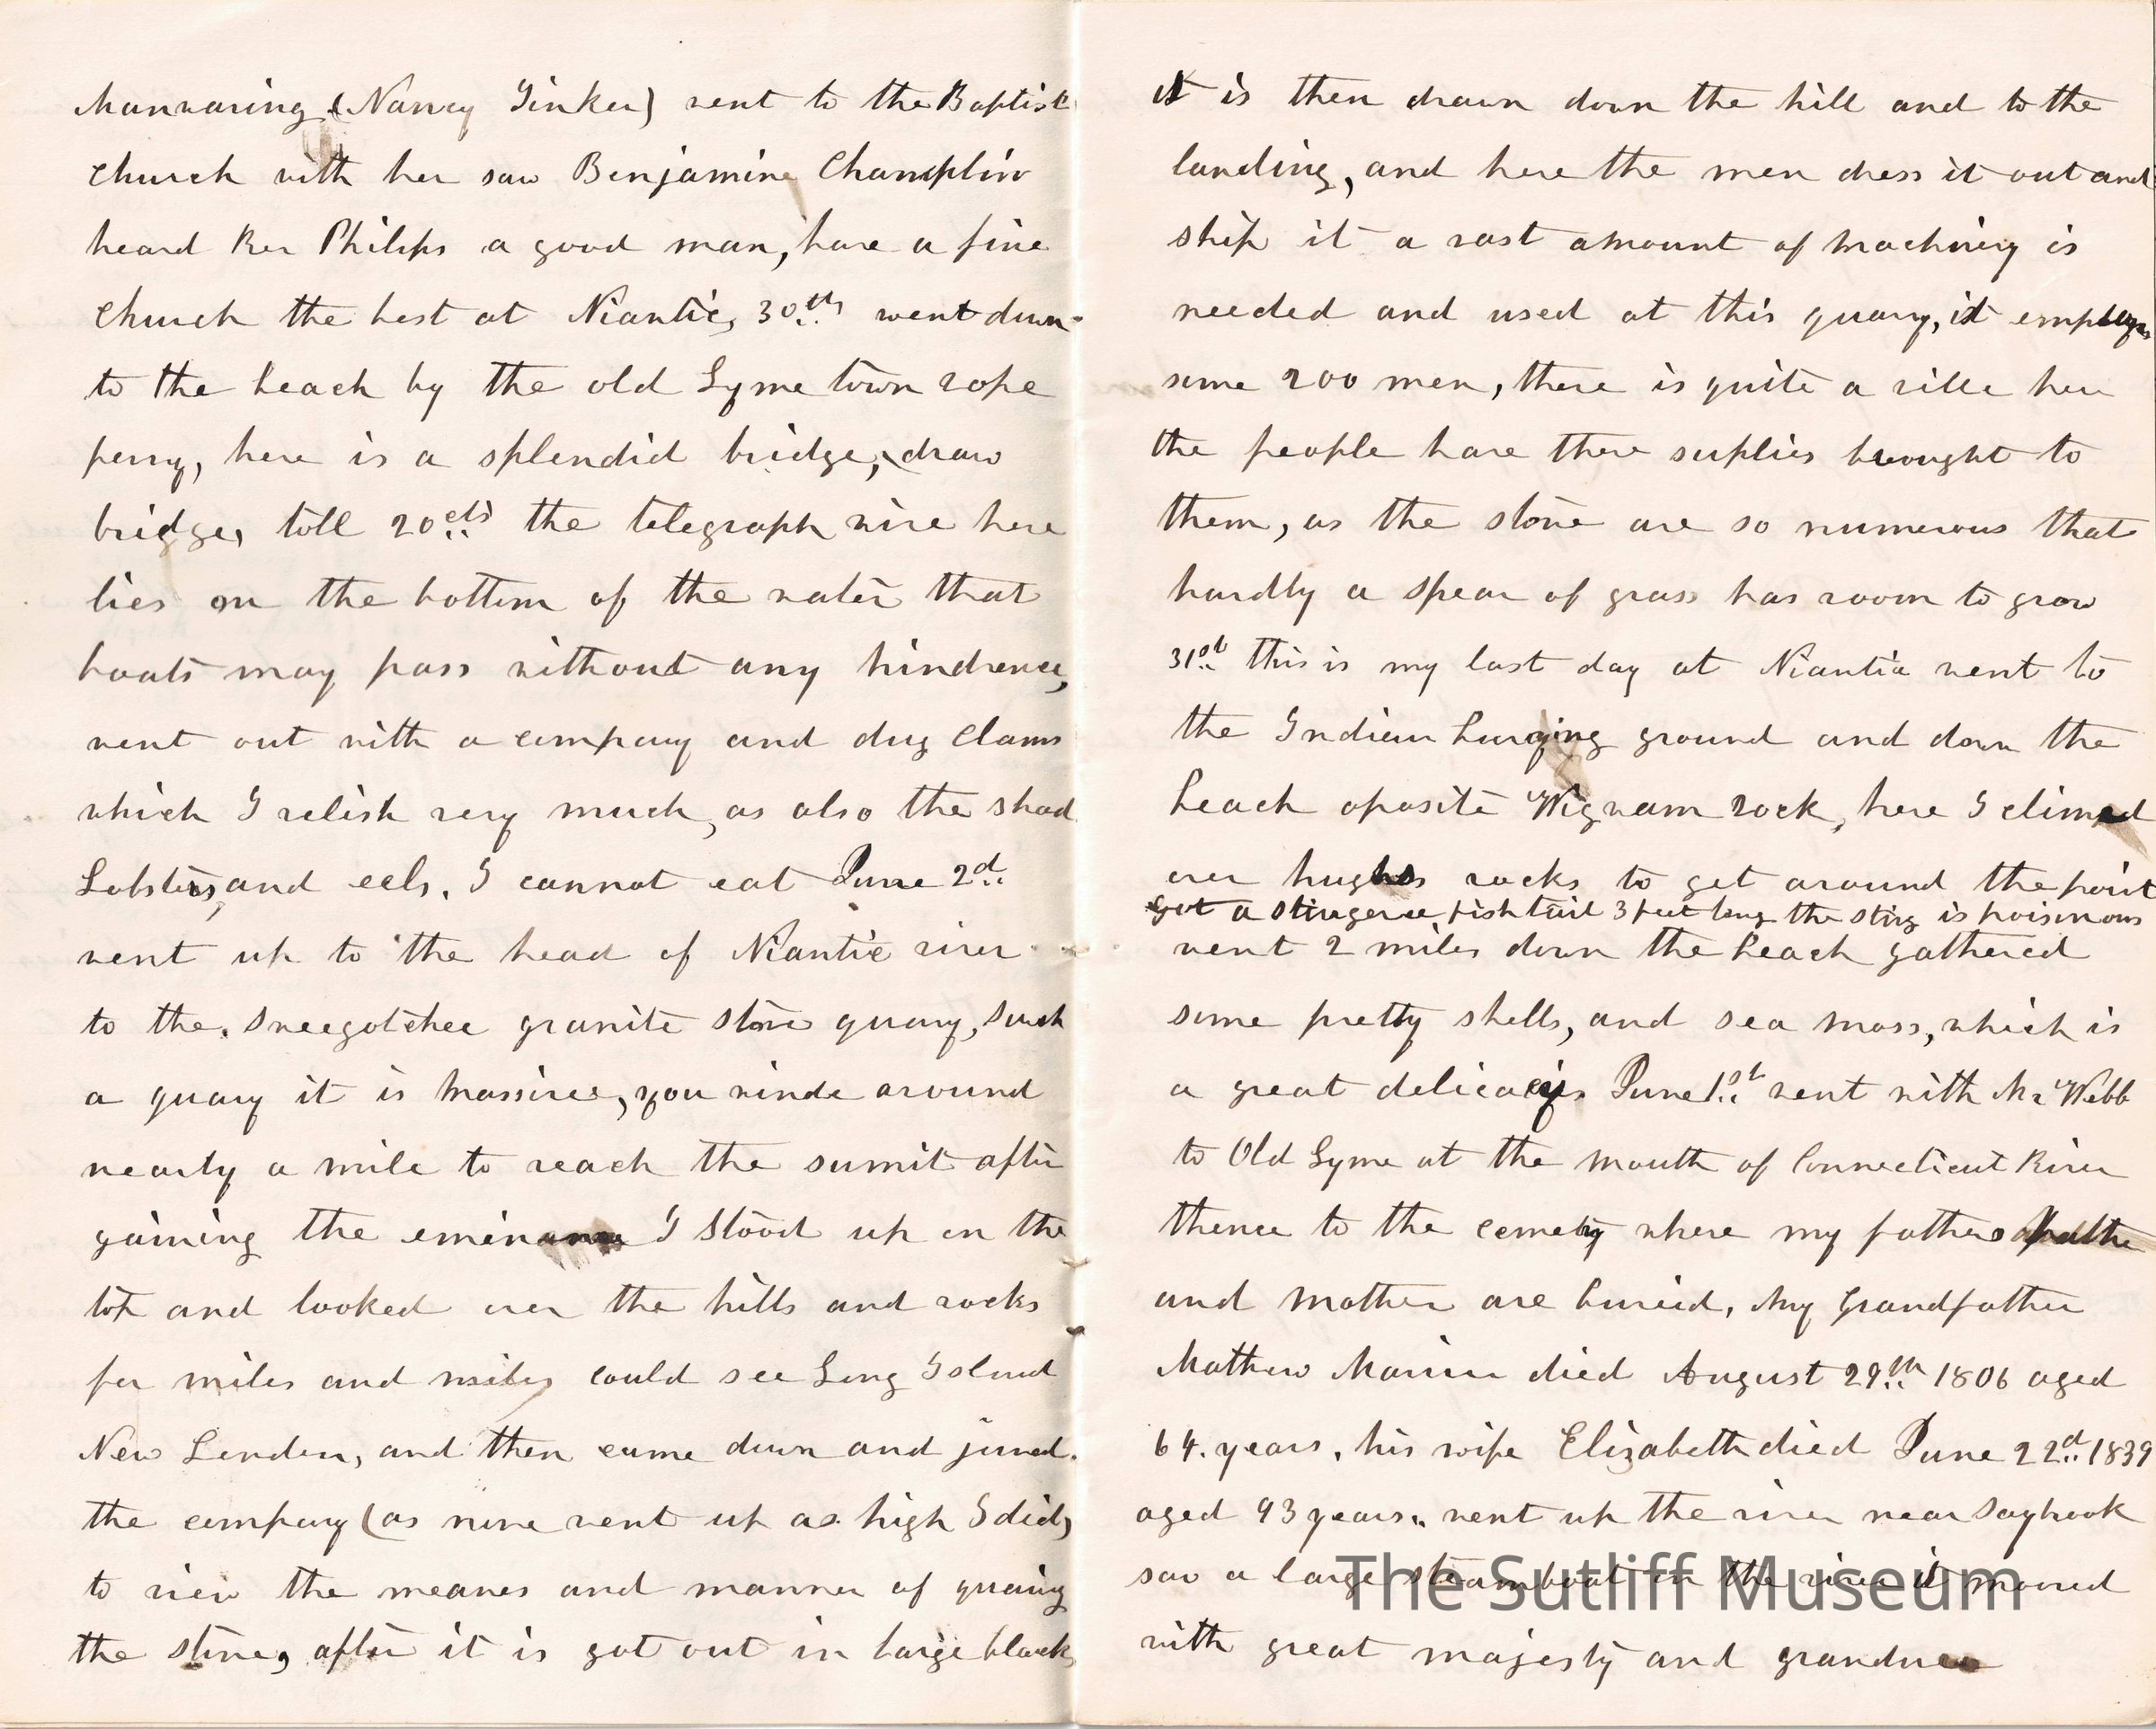 Manwaring (Nancy Tinker) went to the Baptist
church with her saw Benjamine Champlin
heard Rev Philips a good man, have a fine
church the best at Niantic, 30th went down
to the beach by the old Lyme town rope
ferry, here is a splendid bridge, draw
bridge, toll 20cts the telegraph wire here
lies on the bottom of the water that
boats may pass without any hindrence,
went out with a company and dug clams
which I relish very much, as also the shad
Lobsters, and eels, I cannot eat June 2d
went up to the head of Niantic river
to the sneegotchee granite stone quary, such
a quary it is massive, you winde around
nearly a mile to reach the sumit after
gaining the I stood up on the
top and looked over the hills and rocks
for miles and miles could see Long Island
New London, and then came down and joined
the company (as none went up as high I did)
to view the meanes and manner of quaing
the stone, after it is got out in large block
it is then drawn down the hill and to the
landing, and here the men dress it out and
ship it a vast amount of machinery is
needed and used at this quary, it employs
some 200 men, there is quite a ville here
the people have there suplies brought to
them, as the stone are so numerous that
hardly a spear of grass has room to grow
31st this is my last day at Niantic went to
the Indian burying ground and down the
beach oposite Wigwam rock, here I climed
over rocks to get around the point
got a fish tail 3 feet long the sting is poisonous
went 2 miles down the beach gathered
some pretty shells, and sea moss, which is
a great delicacy June 1st went with Mr Webb
to Old Lyme at the mouth of Connecticut River
thence to the cemety where my fathers
and mother are buried, My Grandfather
Mathew Marvin died August 29th 1806 aged
64. years, his wife Elizabeth died June 22d 1839
aged 93 years. went up the river near Saybrook
saw a large steamboat on the river it moved
with great majesty and grandure
The Sutliff Museum